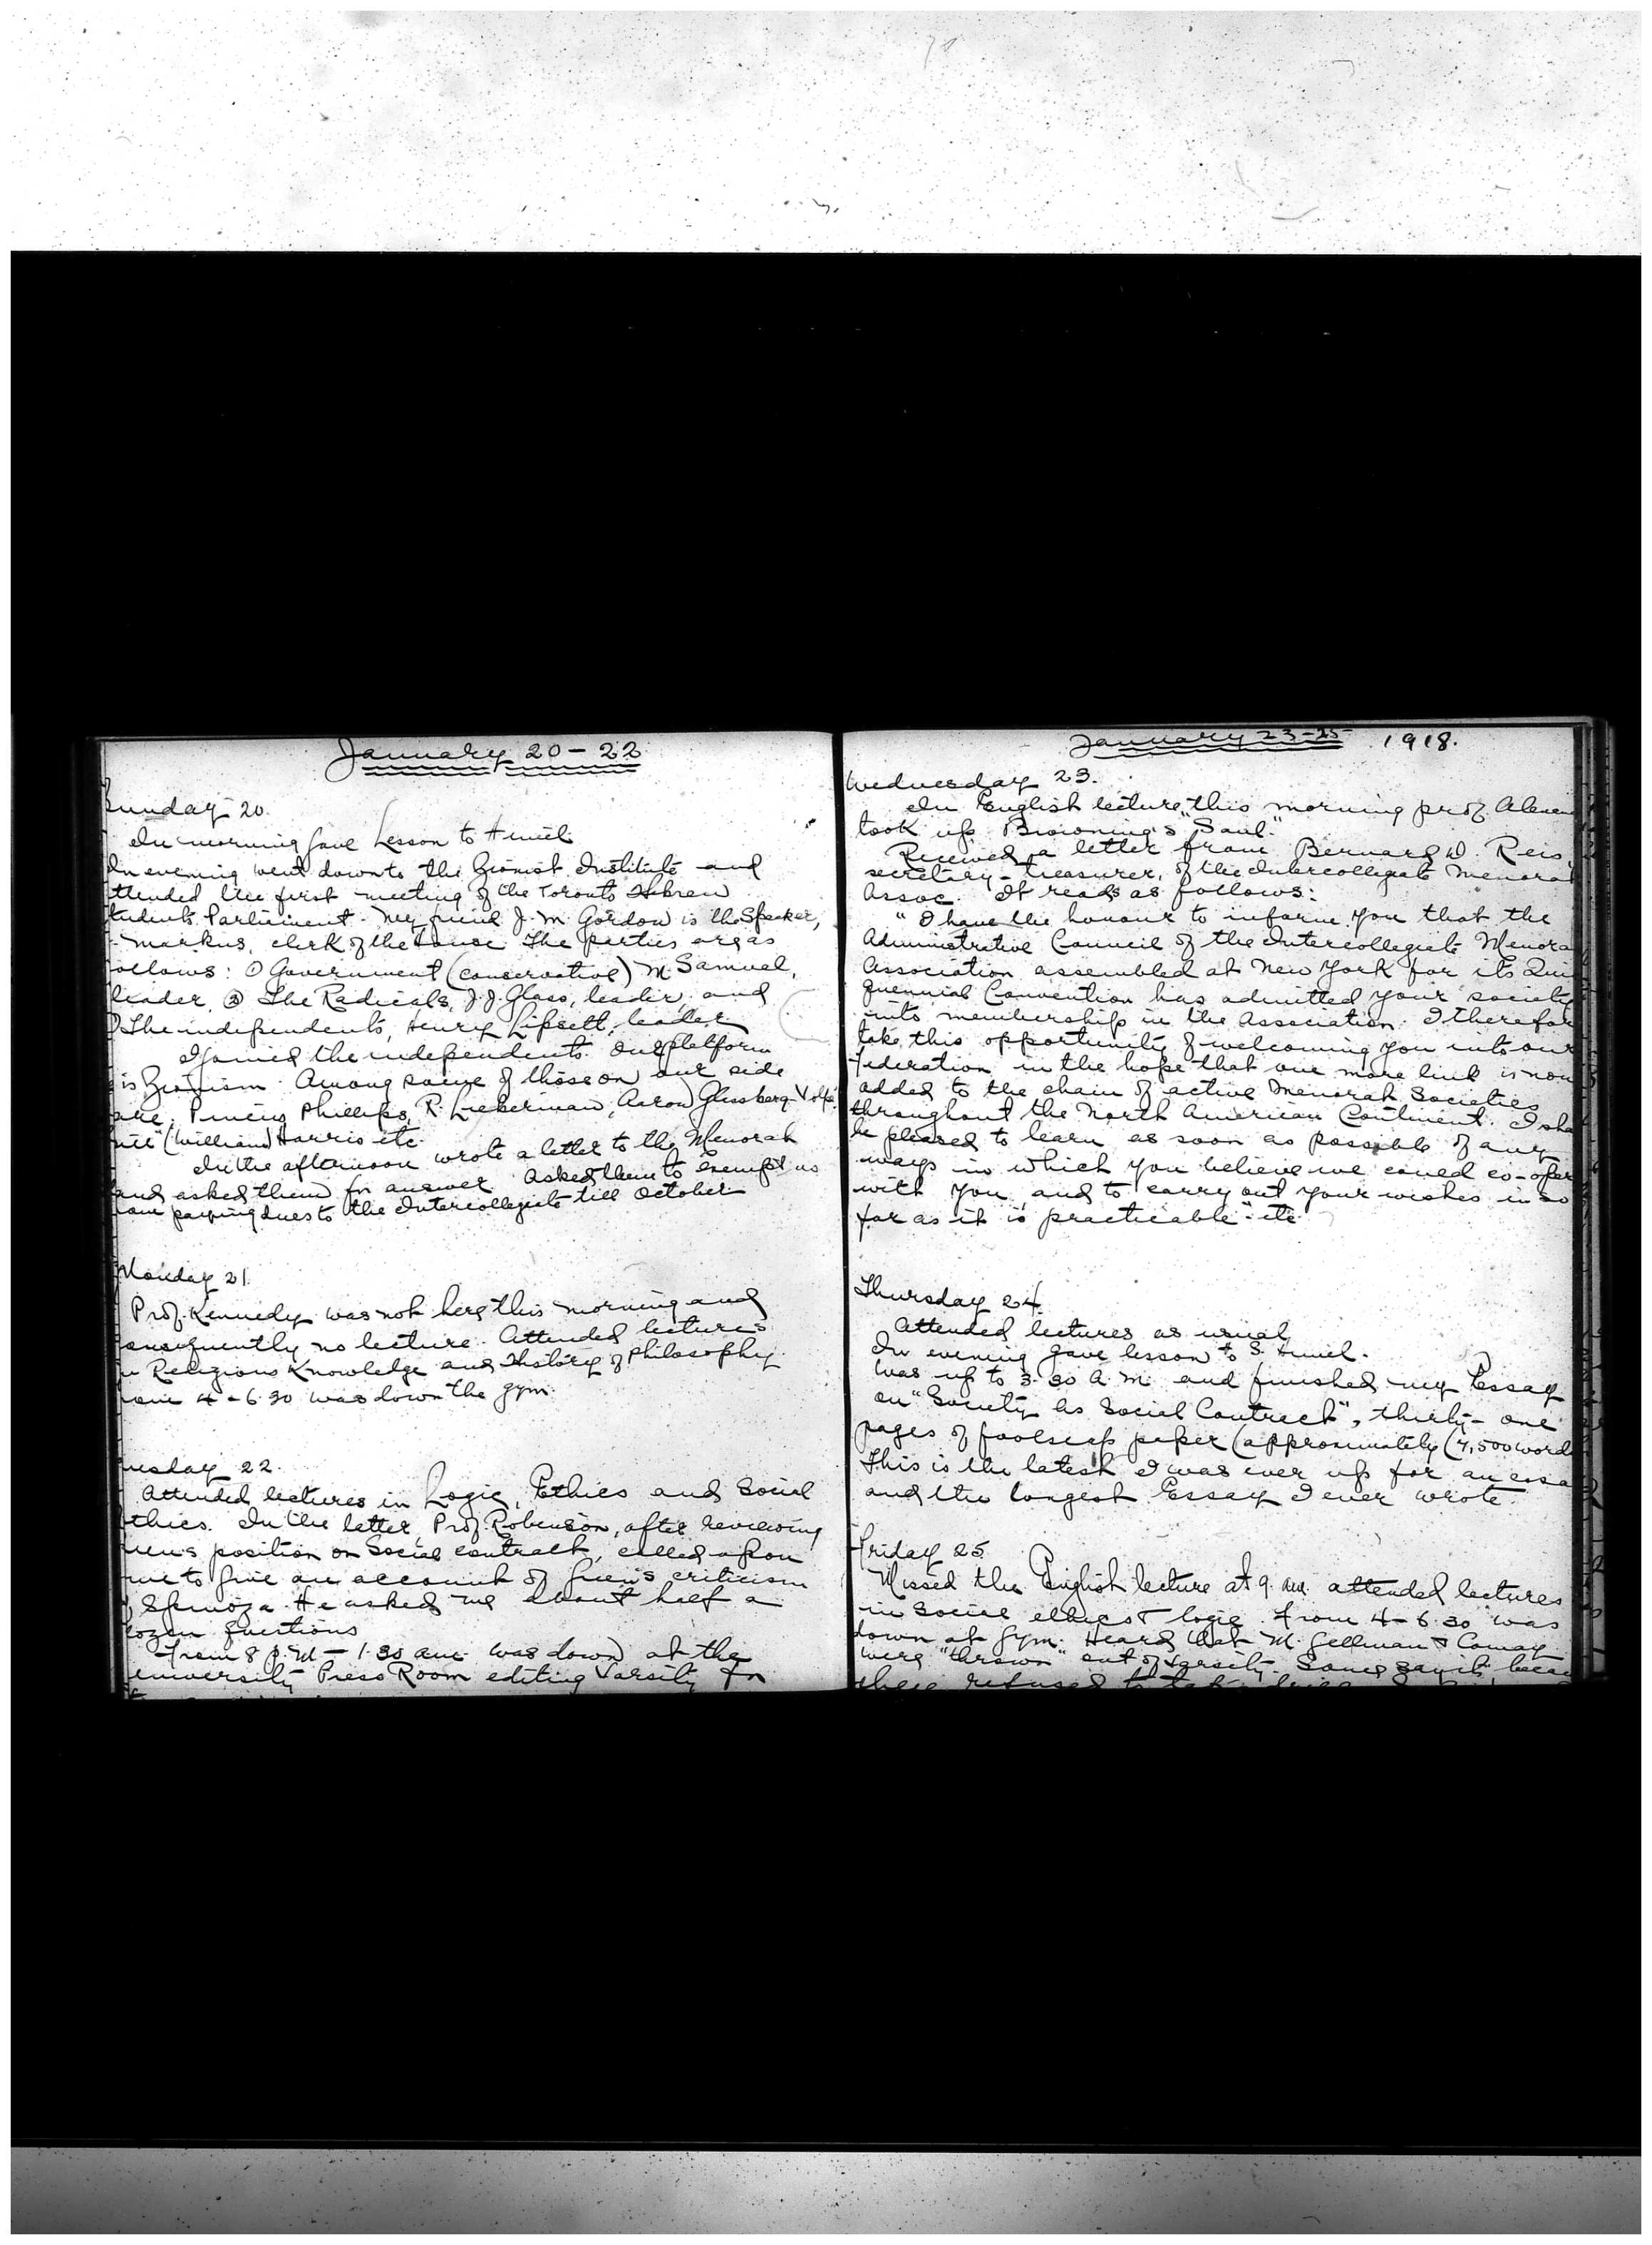 January 20-22
Sunday 20.
In morning gave Lesson to Himel.
In evening went down to the Zionist Institute and
ttended the first meeting of the Toronto Hebrew
tudents Parliament. My friend J. M. Gordon is the Speaker,
Markus, clerk of the House. The parties are as
ollows: ① Government (conservative) M. Samuel,
leader, ② The Radicals, J. J. Glass, leader, and
The independents, Henry Lipsett, leader
I joined the independents. Our platform
is Zionism. Among some of those on our side
are: Pincus Phillips, R. Lieberman, Aaron Glassberg-Volpé
(William) Harris etc.
In the afternoon wrote a letter to the Menorah
and asked them for answer. Asked them to exempt us
from paying dues to the Intercollegiate till October
Monday 21.
Prof. Kennedy was not here this morning and
onsequently no lecture. Attended lectures
in Religious Knowledge and History of Philosophy.
rom 4-6.30 was down the gym.
uesday 22.
Attended lectures in Logic, Ethics and Social
thics. In the latter, Prof. Robinson, after reviewing
reen's position on Social contract, called upon
me to give an account of Green's criticism
of Spinoza. He asked me about half a
dozen questions
From 8 P.M - 1.30 am. was down at the
university Press Room editing Varsity for
January 23-25 1918.
Wednesday 23.
In English lecture this morning prof. Alexan
took up Browning's "Saul."
Received a letter from Bernard D. Reis,
secretary-treasurer, of the Intercollegiate Menorah
Assoc. It reads as follows:
"I have the honour to inform you that the
Administrative Council of the Intercollegiate Menora
Association, assembled at New York for its Quin
quennial Convention has admitted your society
into membership in the Association. I therefor
take this opportunity of welcoming you into our
Federation in the hope that one more link is now
added to the chain of active Menorah Societies
throughout the North American Continent. I sha
be pleased to learn as soon as possible of any
ways in which you believe we could co-oper
with you, and to carry out your wishes in so
far as it is practicable" etc.
Thursday 24.
Attended lectures as usual,
In evening gave lesson to S. Himel.
Was up to 3.30 A.M. and finished my Essay
on "Society as Social Contract", thirty-one
pages of foolscap paper (approximately (7,500 words
This is the latest I was ever up for an essa
and the longest Essay I ever wrote.
Friday 25.
Missed the English lecture at 9 am. attended lectures
in social ethics & logic. From 4-6.30 was
down at gym. Heard that M. Gellman & Comay
were "thrown" out of Varsity. Some say it's becau
they refused to